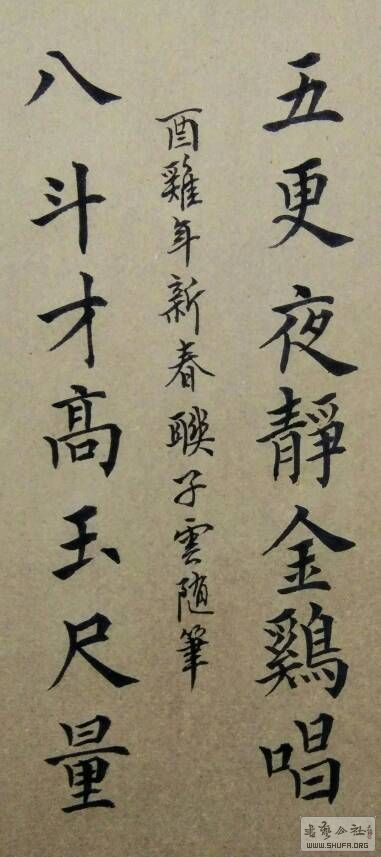 五更夜靜金鷄唱
酉雞年新春聯子雲随筆
八斗才高玉尺量
书艺公社
WWW.SHUFA.ORG